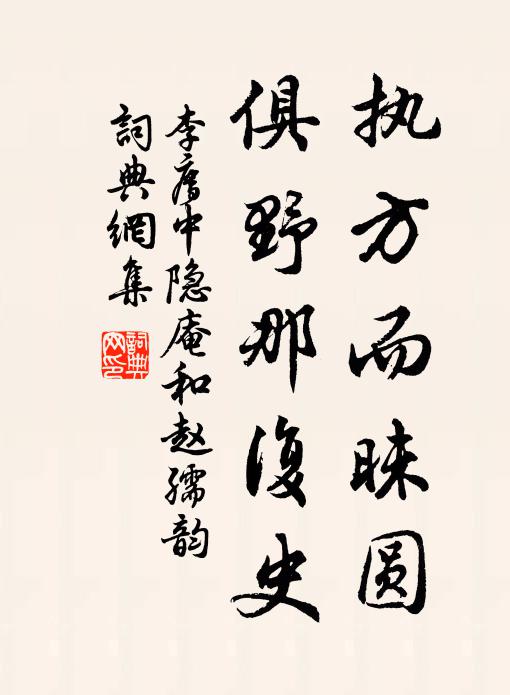 执方而昧圆
俱野那復史
李膺中隐庵和赵孺韵
詞典網集
詞典網印